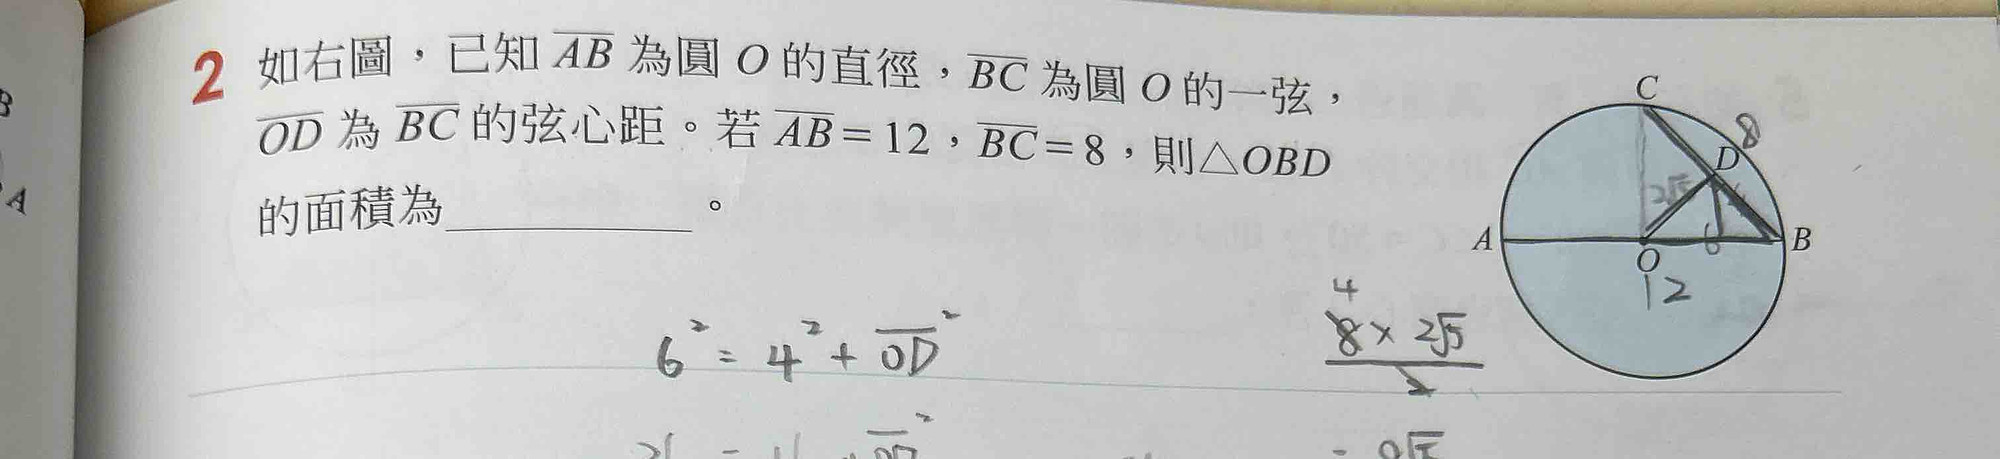 2 如右圖，已知 AB 為圓 O 的直徑，BC 為圓 O 的一弦，
OD 為 BC 的弦心距。若 AB = 12，BC = 8，則△OBD
的面積為__________。
C
8
D
2√5
A
6
B
O
12
6² = 4² + OD²
4
8 × 2√5
2
B
A